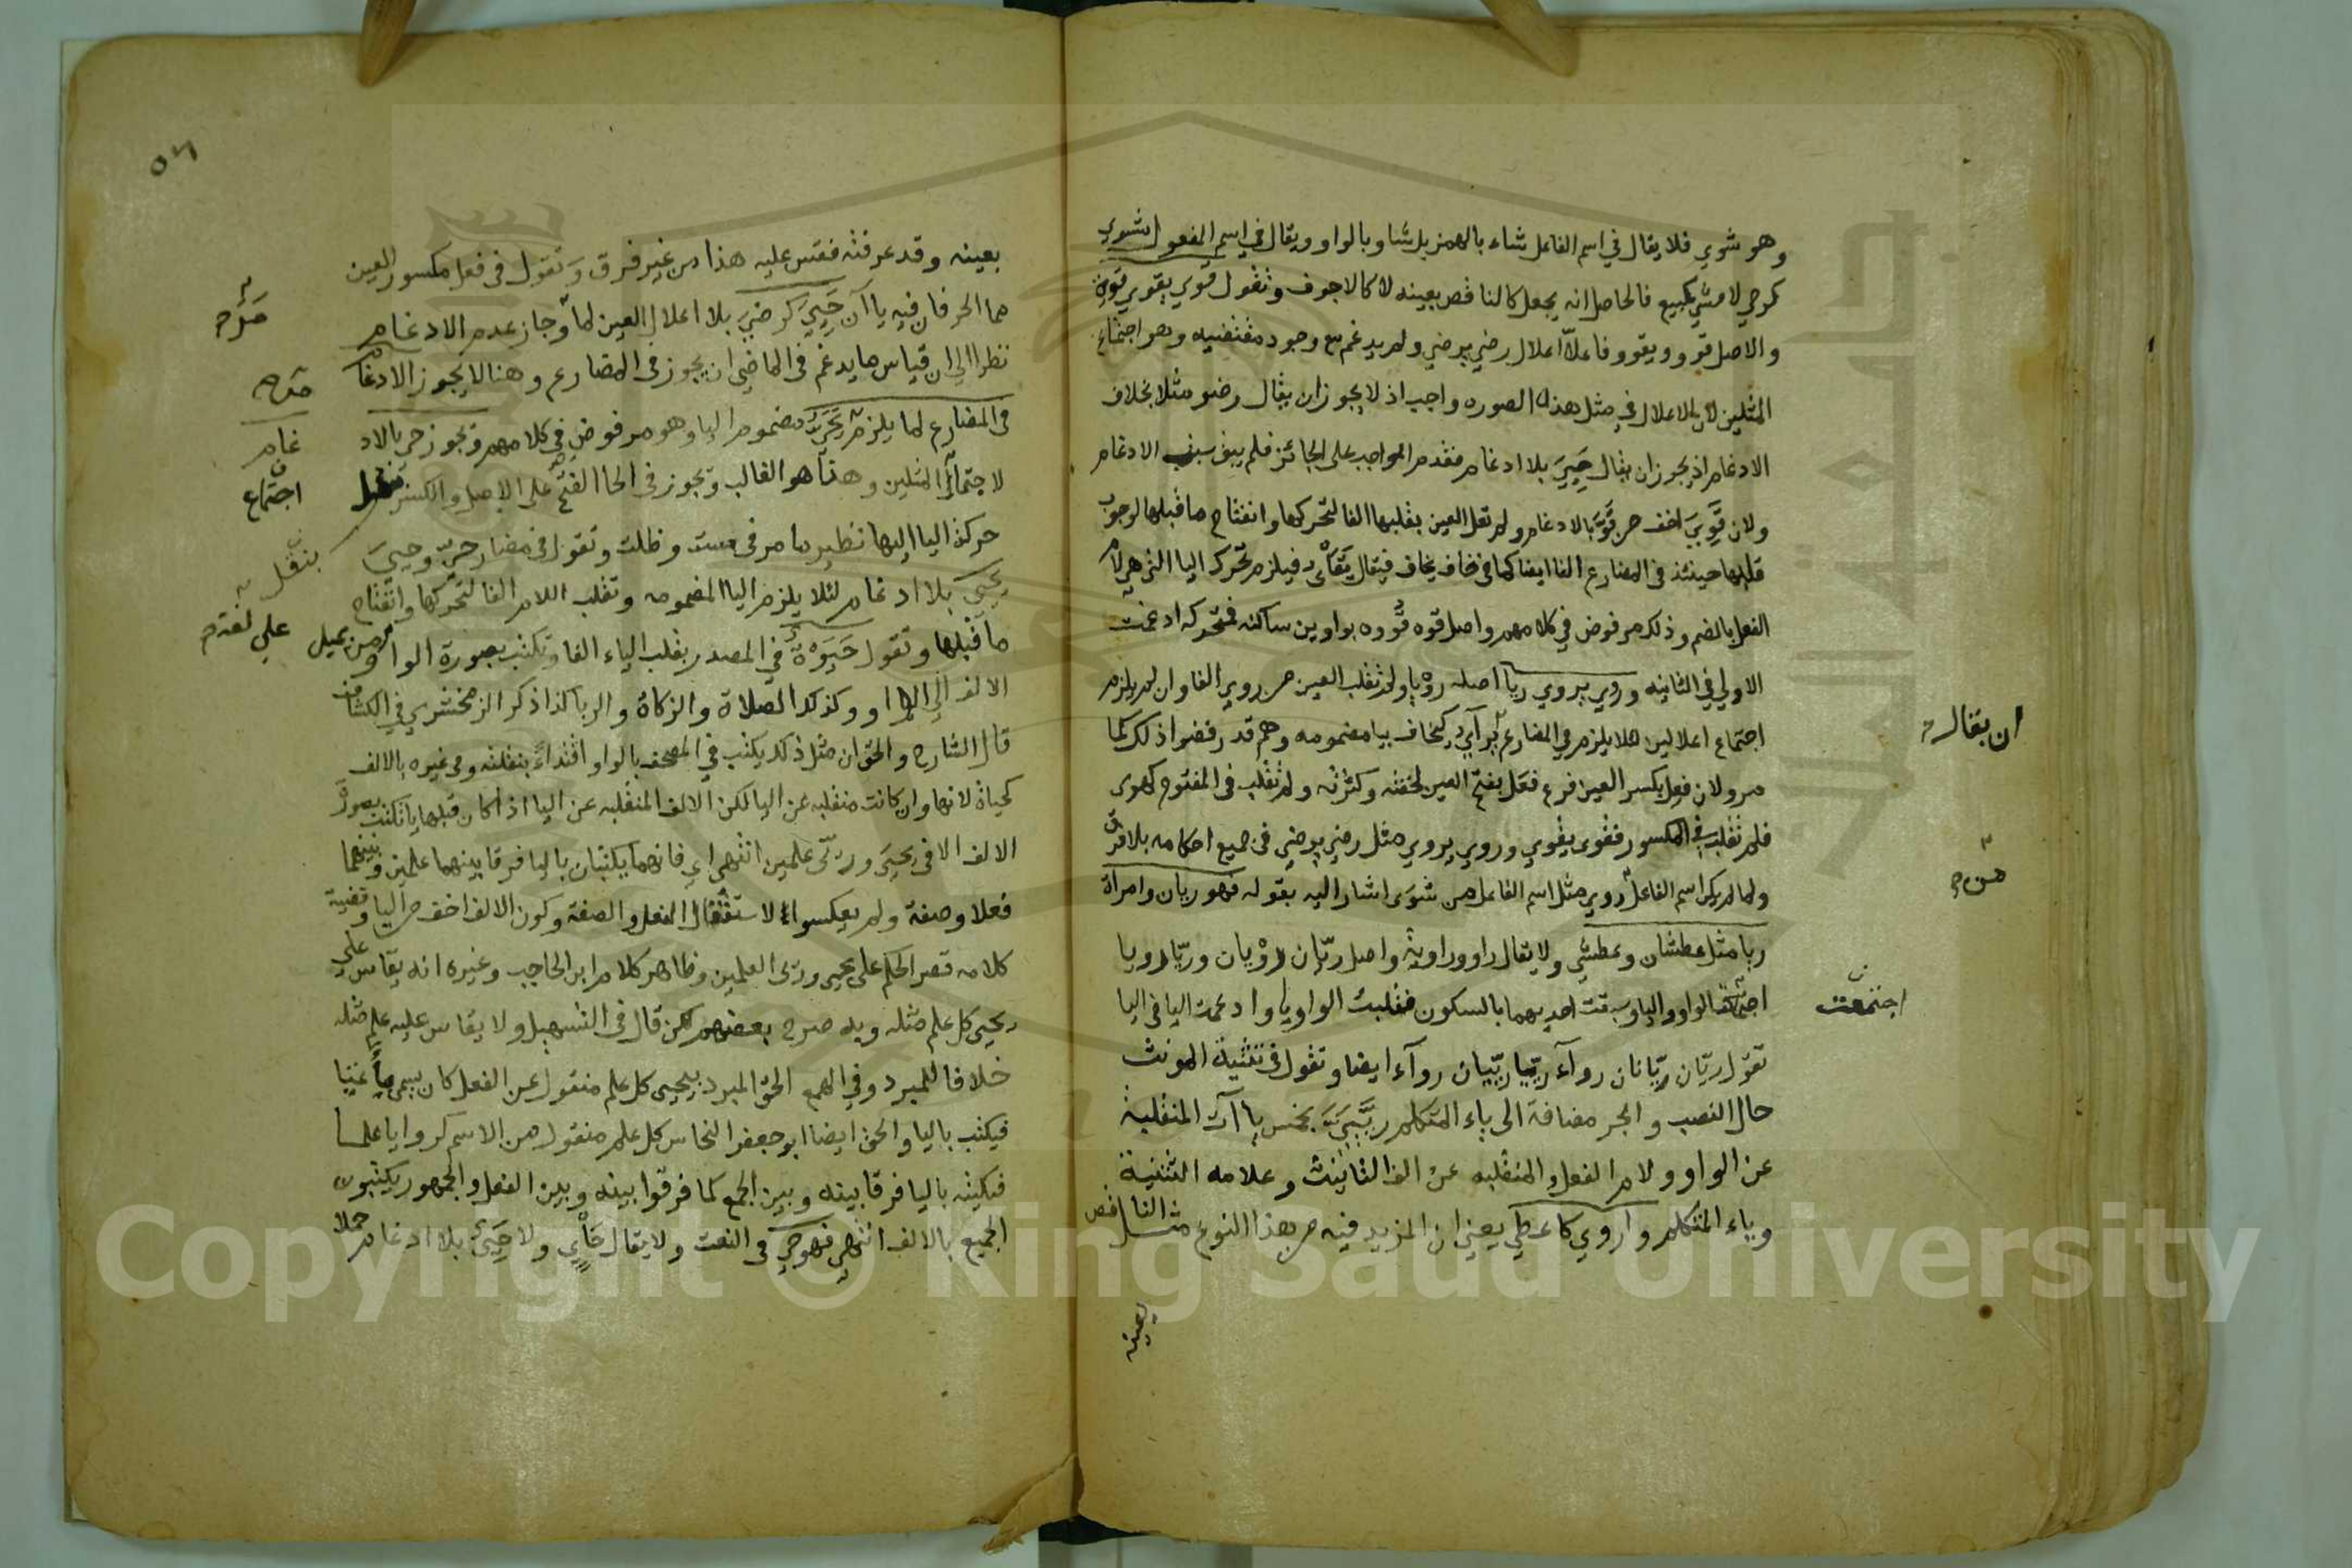 وهو شوي فلا يقال في اسم الفاعل شاء بالهمز بل شاو بالواو ويقال في اسم المفعول مشوي
كرمي لا مشي كمبيع فالحاصل انه يجعل كالناقص بعينه لا كالاجوف وتقول قوي يقوي قوة
والاصل قوو ويقوو فاعلا اعلال رضي يرضي ولم يدغم مع وجود مقتضيه وهو اجتماع
المثلين لان الاعلال في مثل هذه الصوره واجب اذ لا يجوز ان يقال رضو مثلا بخلاف
الادغام اذ يجوز ان يقال حيي بلا ادغام فقدم الواجب على الجائز فلم يبق سبب الادغام
ولان قوي اخف من قو بالادغام ولم تعل العين بقلبها الفا لتحركها وانفتاح ما قبلها لوجوب
قلبها حينئذ في المضارع الفا ايضا كما في خاف يخاف فيقال يقاي فيلزم تحرك اليا التي هي لام
الفعل بالضم وذلك مرفوض في كلامهم واصل قوه قووه بواوين ساكنه فمتحركه ادغمت
الاولي في الثانيه وروي يروي ريا اصله رويا ولم تقلب العين من روي الفا وان لم يلزم
اجتماع اعلالين لئلا يلزم في المضارع يراي كيخاف بيا مضمومه وهم قد رفضوا ذلك كما
مر ولان فعل بكسر العين فرع فعل بفتح العين لخفته وكثرته ولم تقلب في المفتوح كهوى
فلم تقلب في المكسور فقوى يقوي وروي يروي مثل رضي يرضي في جميع احكامه بلا فرق
ولما لم يكن اسم الفاعل روي مثل اسم الفاعل من شوى اشار اليه بقوله فهو ريان وامراة
ريا مثل عطشان وعطشي ولا يقال راو وراوية واصل ريان رويان وريا رويا
اجتمعت الواو واليا وسبقت احديهما بالسكون فقلبت الواو يا وادغمت اليا في اليا
تقول ريان ريانان روآء ريا رييان روآء ايضا وتقول في تثنية المونث
حال النصب والجر مضافة الى ياء المتكلم رييي بخمس ياآت المنقلبة
عن الواو ولام الفعل والمنقلبه عن الف التانيث وعلامه التثنية
وياء المتكلم واروي كاعطي يعني ان المزيد فيه من هذا النوع مثل الناقص
بعينه
ان يقال
من
اجتمعت
٥٦
بعينه وقد عرفته فقس عليه هذا من غير فرق وتقول في فعل مكسور العين
مما الحرفان فيه ياآن حيي كرضي بلا اعلال العين لما وجاز عدم الادغام
نظرا الي ان قياس ما يدغم في الماضي ان يجوز في المضارع وهنا لا يجوز الادغام
في المضارع لما يلزم من مضموم اليا وهو مرفوض في كلامهم ويجوز حي بالاد
لاجتماع المثلين وهذا هو الغالب ويجوز في الحا الفتح على الاصل والكسر بنقل
حركة اليا اليها نظير ما مر في مست وظلت وتقول في مضارع حي وحيي
يحيي بلا ادغام لئلا يلزم اليا المضمومه وتقلب اللام الفا لتحركها وانفتاح
ما قبلها وتقول حيوة في المصدر بقلب الياء الفا وتكتب بصورة الواو من يميل
الالف الي الواو وكذلك الصلاة والزكاة والربا كذا ذكر الزمخشري في الكشاف
قال الشارح والحق ان مثل ذلك يكتب في المصحف بالواو اقتداء بنقلته وفي غيره بالالف
كحياة لانها وان كانت منقلبه عن اليا لكن الالف المنقلبه عن اليا اذا كان قبلها يا تكتب بصورة
الالف الا في يحيي وريى علمين انتهى اي فانهما يكتبان باليا فرقا بينهما علمين وبينهما
فعلا وصفة ولم يعكسوا لاستثقال الفعل والصفة وكون الالف اخف من اليا وقضية
كلامه قصر الحكم على يحيى وريى العلمين وظاهر كلام ابن الحاجب وغيره انه يقاس علي
يحيى كل علم مثله وبه صرح بعضهم لكن قال في التسهيل ولا يقاس عليه علم مثله
خلافا للمبرد وفي الهمع الحق المبرد بيحيى كل علم منقول عن الفعل كان يسمى
فيكتب باليا والحق ايضا ابو جعفر النحاس كل علم منقول من الاسم كروايا علما
فيكتبه باليا فرقا بينه وبين الجمع كما فرقوا بينه وبين الفعل والجمهور يكتبون
الجميع بالالف انتهى فهو حي في النعت ولا يقال حاي ولا حيي بلا ادغام حملا
غام
اجتماع
بنقل
علي لغة